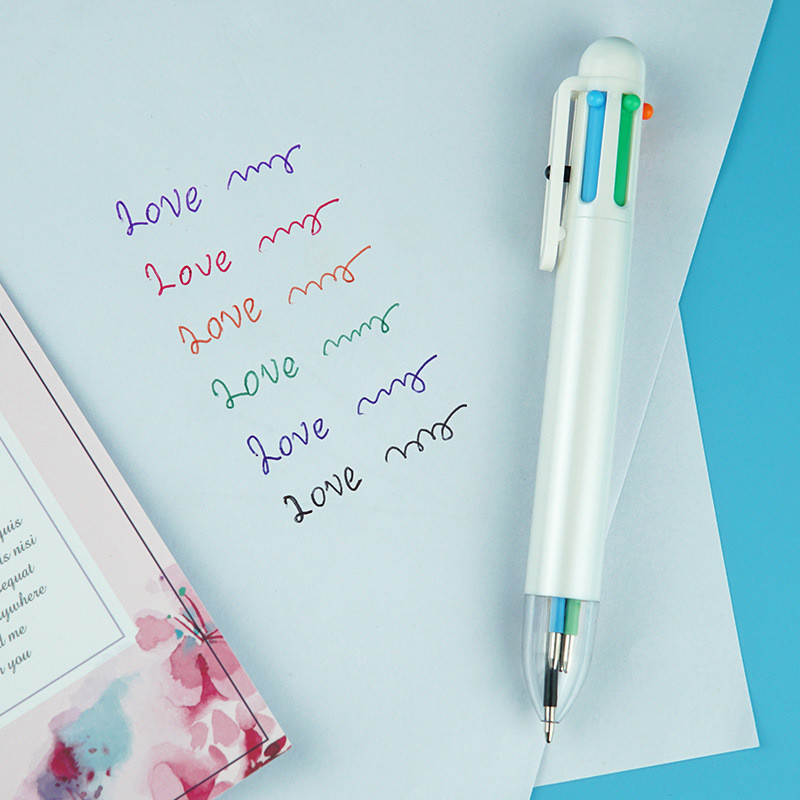 Love
Love
Love
Love
Love
Love
quis
is nisi
equat
ywhere
d me
r you